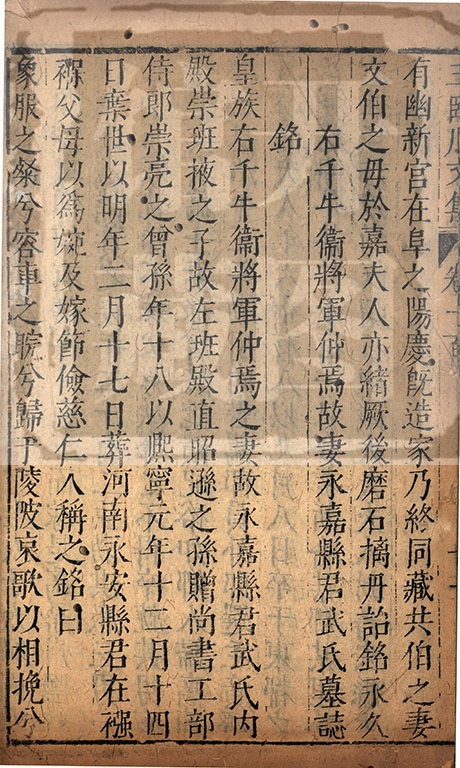 有幽新宮在阜之陽慶既造家乃終同藏共伯之妻
文伯之毋於嘉夫人亦緒厥後磨石摛丹詒銘永久
右千牛衞將軍仲焉故妻永嘉縣君武氏墓誌
銘
皇族右千牛衞將軍仲焉之妻故永嘉縣君武氏内
殿崇班掖之子故左班殿直昭遜之孫贈尚書工部
侍郎崇亮之曾孫年十八以熈寧元年十二月十四
日棄世以明年二月十七日葬河南永安縣君在襁
褓父毋以爲婉及嫁節儉慈仁人稱之銘曰
象服之粲兮容車之晥兮歸于陵陂哀歌以相挽兮